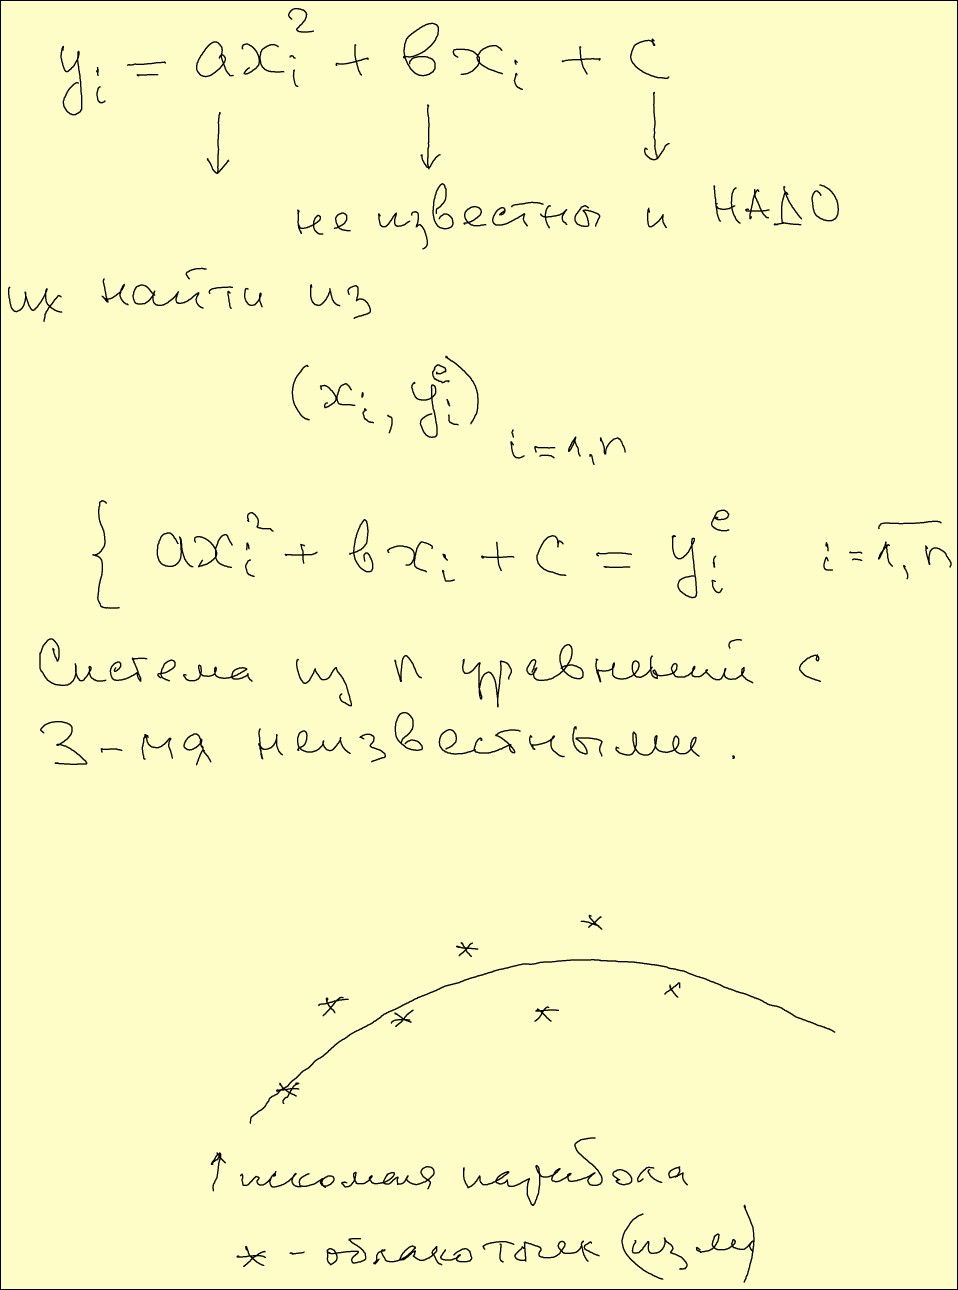 yᵢ = axᵢ² + вxᵢ + c
↓ ↓ ↓
не известны и НАДО
их найти из
(xᵢ, yᵢᵉ) i=1,n
{ axᵢ² + вxᵢ + c = yᵢᵉ i=1,n
Система из n уравнений с
3-мя неизвестными.
↑ искомая парабола
* - облако точек (изм)